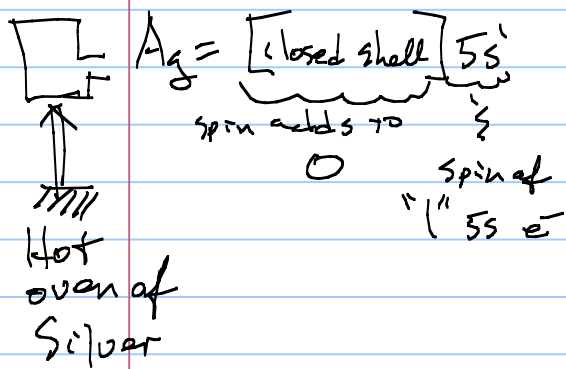 Ag = [closed shell] 5s¹
spin adds to
0
spin of
"1" 5s e⁻
Hot
oven of
Silver